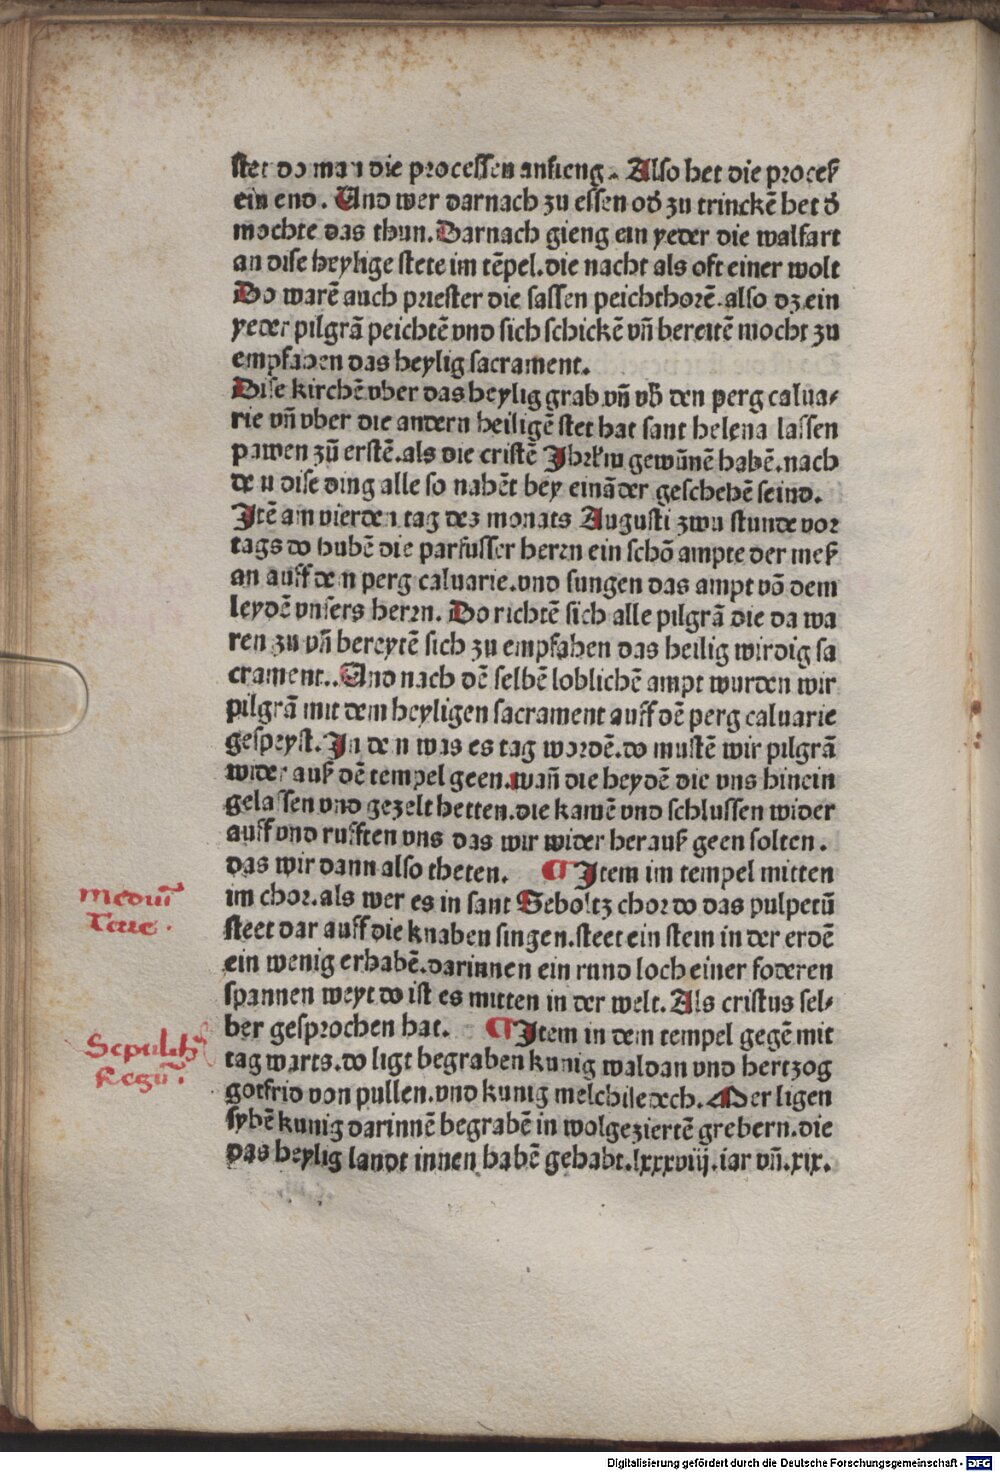 stet do man die processen anfieng. Also het die proceß
ein end. Und wer darnach zu essen od̕ zu trinckē het d̕
mochte das thun. Darnach gieng ein yeder die walfart
an dise heylige stete im tēpel. die nacht als oft einer wolt
Do warē auch priester die sassen peichthorē. also dz ein
yeder pilgrā peichtē vnd sich schickē vñ bereitē mocht zu
empfahen das heylig sacrament.
Dise kirchē vber das heylig grab vñ vb̕ den perg calua⸗
rie vñ vber die andern heiligē stet hat sant helena lassen
pawen zū erstē. als die cristē Jhrłm gewūnē habē. nach
dē n dise ding alle so nahēt bey eināder geschehē seind.
Jtē am vierden tag des monats Augusti zwu stunde vor
tags do hubē die parfusser herrn ein schō ampte der meß
an auff dem perg caluarie. vnd sungen das ampt vō dem
leydē vnsers herrn. Do richtē sich alle pilgrā die da wa
ren zu vñ bereytē sich zu empfahen das heilig wirdig sa
crament.. Und nach dē selbē loblichē ampt wurden wir
pilgrā mit dem heyligen sacrament auff dē perg caluarie
gespeyst. Jn den was es tag wordē. do mustē wir pilgrā
wider auß dē tempel geen. wañ die heydē die vns hinein
gelassen vnd gezelt hetten. die kamē vnd schlussen wider
auff vnd rufften vns das wir wider herauß geen solten.
das wir dann also theten. ¶ Jtem im tempel mitten
im chor. als wer es in sant Seboltz chor do das pulpetū
steet dar auff die knaben singen. steet ein stein in der erdē
ein wenig erhabē. darinnen ein rund loch einer foderen
spannen weyt do ist es mitten in der welt. Als cristus sel⸗
ber gesprochen hat. ¶ Jtem in dem tempel gegē mit
tag warts. do ligt begraben kunig waldan vnd hertzog
gotfrid von pullen. vnd kunig melchisedech. Mer ligen
sybē kunig darinnē begrabē in wolgeziertē grebern. die
das heylig landt innen habē gehabt. lxxxviij. iar vñ. xix.
Mediū
Terre.
Sepulchr̄
Regū.
Digitalisierung gefördert durch die Deutsche Forschungsgemeinschaft - DFG